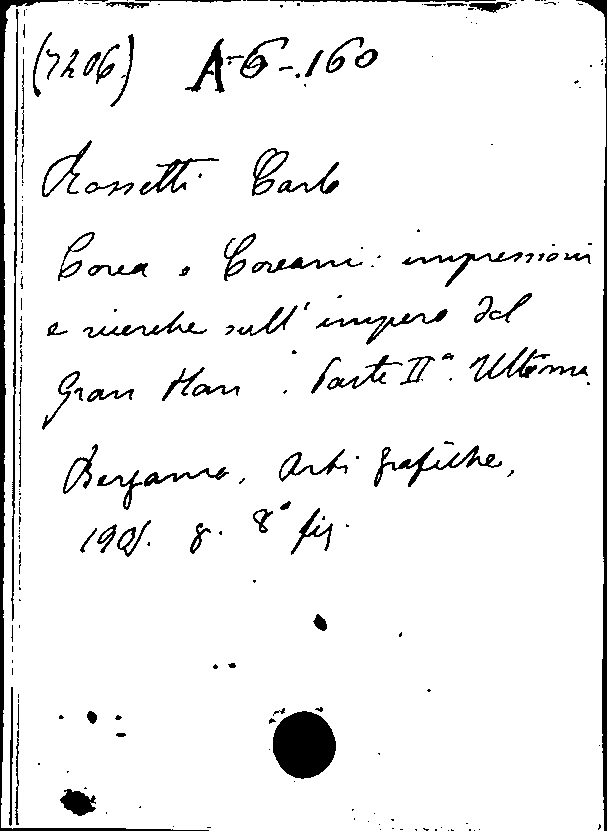 (7206) A-6-.160
Rossetti Carlo
Corea e Coreani: impressioni
e ricerche sull' impero del
Gran Han. Parte IIª. Ultima.
Bergamo, Arti grafiche,
1905. 8. 8° fig.